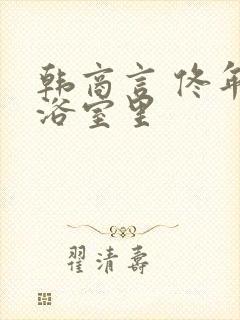 韩商言 佟年
浴室里
翟清寿